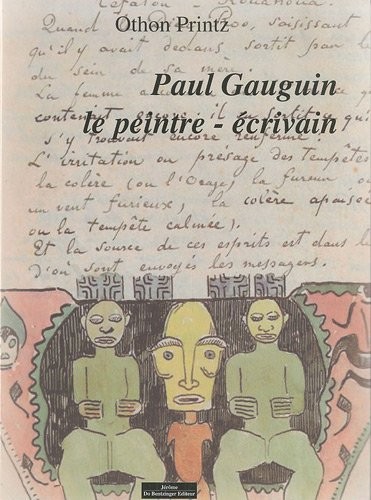 Othon Printz
Quand saisissant
qu'il y avait dedans, sortit par le
du sein de sa mère.
La femme a ce
Paul Gauguin
contenait encore il en sortit y qui
le peintre - écrivain
s'y trouvait encore renfermé.
L'irritation ou présage des tempêtes
la colère (ou l'Orage) la fureur ou
un vent furieux, la colère apaisée
ou la tempête calmée).
Et la source de ces esprits est dans le
D'où sont envoyés les messagers.
Jérôme
Do Bentzinger Editeur